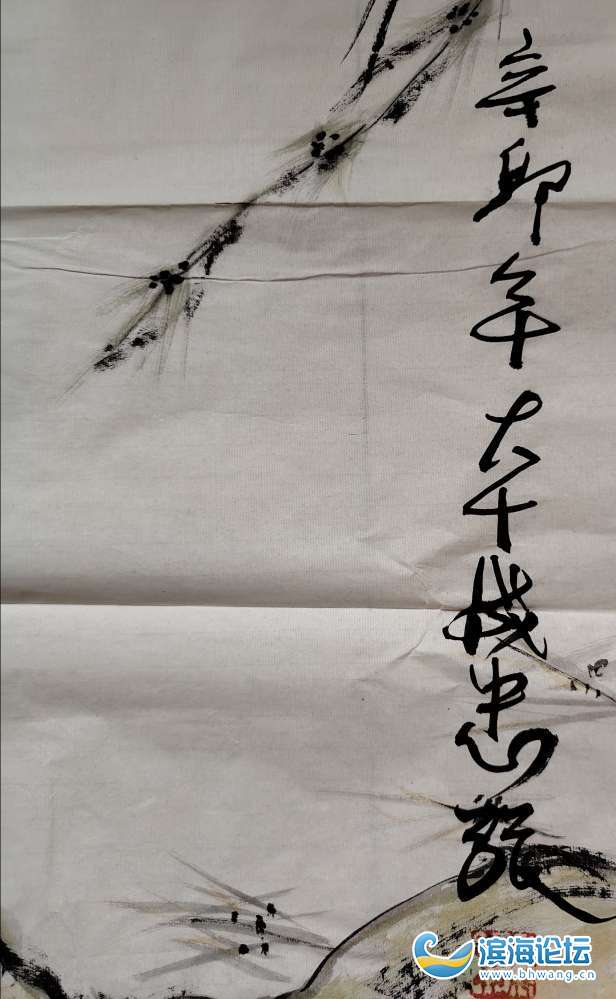 辛卯年大千
忠龙
滨海论坛
www.bhwang.cn